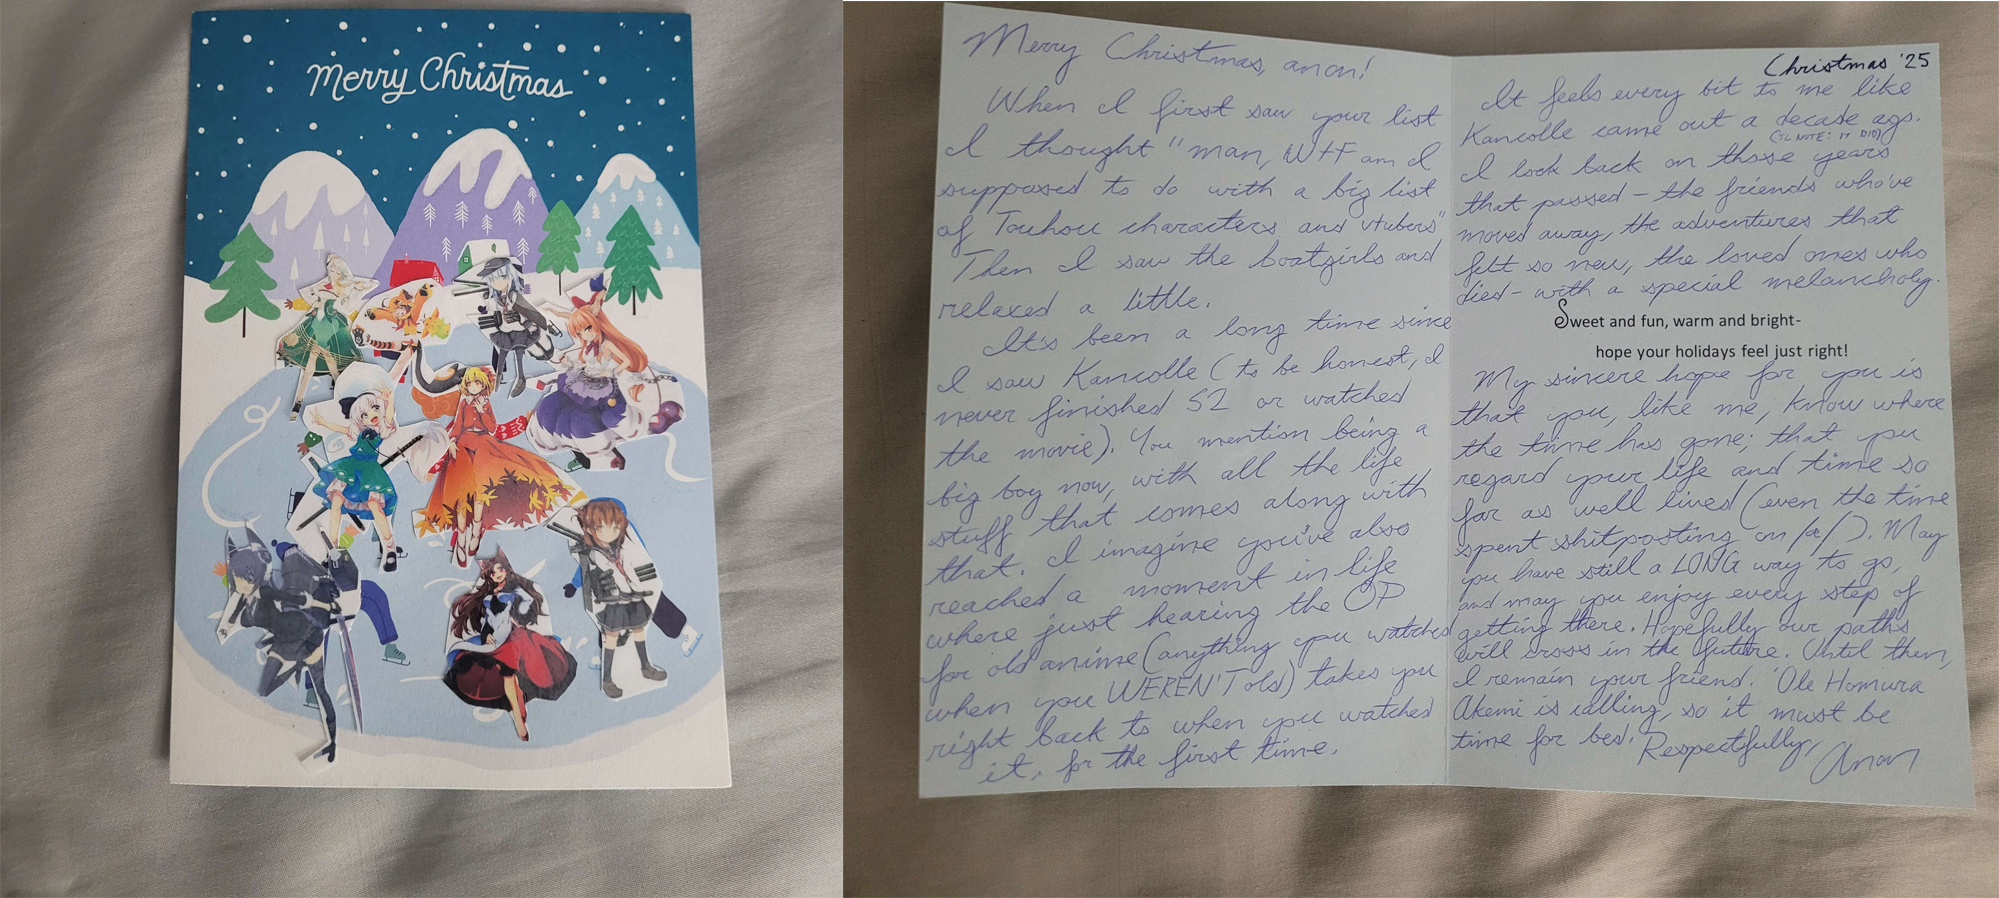 Merry Christmas
Merry Christmas, anon!
When I first saw your list
I thought "man, WTF am I
supposed to do with a big list
of Touhou characters and vtubers"
Then I saw the boatgirls and
relaxed a little.
It's been a long time since
I saw Kancolle (to be honest, I
never finished S2 or watched
the movie). You mention being a
big boy now, with all the life
stuff that comes along with
that. I imagine you've also
reached a moment in life
where just hearing the OP
for old anime (anything you watched
when you WEREN'T old) takes you
right back to when you watched
it, for the first time.
Christmas '25
It feels every bit to me like
Kancolle came out a decade ago.
(TL NOTE: IT DID)
I look back on those years
that passed – the friends who've
moved away, the adventures that
felt so new, the loved ones who
died – with a special melancholy.
Sweet and fun, warm and bright-
hope your holidays feel just right!
My sincere hope for you is
that you, like me, know where
the time has gone; that you
regard your life and time so
far as well lived (even the time
spent shitposting on /a/). May
you have still a LONG way to go,
and may you enjoy every step of
getting there. Hopefully our paths
will cross in the future. Until then,
I remain your friend. 'Ole Homura
Akemi is calling, so it must be
time for bed. Respectfully,
Anon